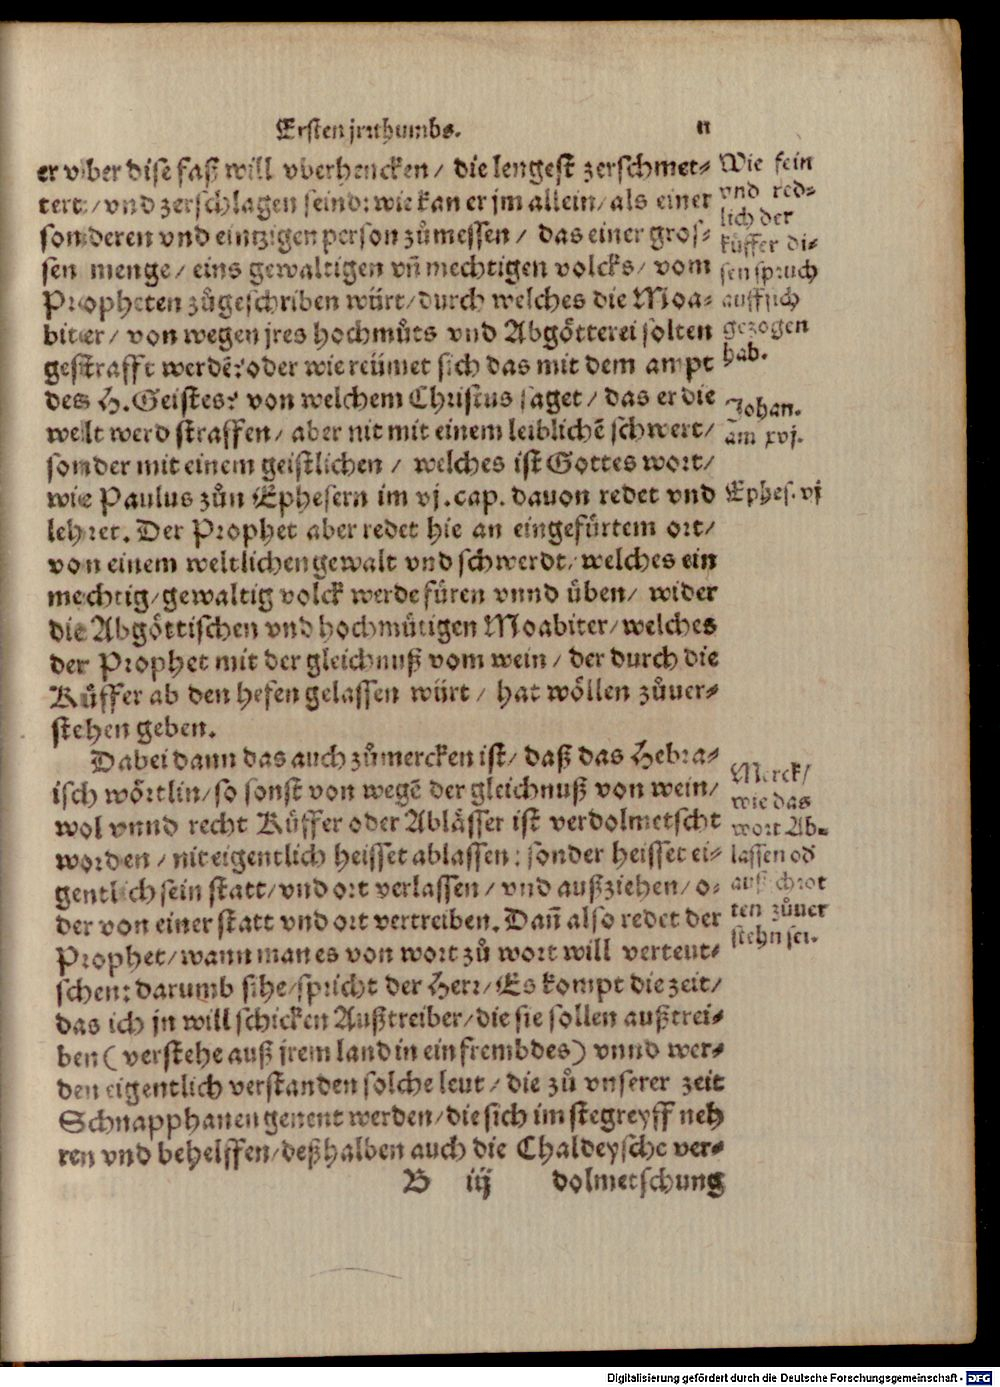 Ersten jrꝛthumbs. 11
er vber dise faß will vberhencken / die lengest zerschmet⸗
tert / vnd zerschlagen seind: wie kan er jm allein / als einer
sonderen vnd eintzigen person zůmessen / das einer gros⸗
sen menge / eins gewaltigen vñ mechtigen volcks / vom
Propheten zůgeschriben würt / durch welches die Moa⸗
biter / von wegen jres hochmůts vnd Abgötterei solten
gestrafft werdẽ? oder wie reümet sich das mit dem ampt
des H. Geistes? von welchem Christus saget / das er die
welt werd straffen / aber nit mit einem leiblichẽ schwert /
sonder mit einem geistlichen / welches ist Gottes wort /
wie Paulus zůn Ephesern im vj. cap. dauon redet vnd
lehret. Der Prophet aber redet hie an eingefürtem ort /
von einem weltlichen gewalt vnd schwerdt / welches ein
mechtig / gewaltig volck werde füren vnnd üben / wider
die Abgöttischen vnd hochmütigen Moabiter / welches
der Prophet mit der gleichnuß vom wein / der durch die
Küffer ab den hefen gelassen würt / hat wöllen zůuer⸗
stehen geben.
Dabei dann das auch zůmercken ist / daß das Hebra⸗
isch wörtlin / so sonst von wegẽ der gleichnuß von wein /
wol vnnd recht Küffer oder Ablässer ist verdolmetscht
worden / nit eigentlich heisset ablassen: sonder heisset ei⸗
gentlich sein statt / vnd ort verlassen / vnd außziehen / o⸗
der von einer statt vnd ort vertreiben. Dañ also redet der
Prophet / wann man es von wort zů wort will verteut⸗
schen: darumb sihe / spricht der Herr / Es kompt die zeit /
das ich jn will schicken Außtreiber / die sie sollen außtrei⸗
ben ( verstehe auß jrem land in ein frembdes ) vnnd wer⸗
den eigentlich verstanden solche leut / die zů vnserer zeit
Schnapphanen genent werden / die sich im stegreyff neh
ren vnd behelffen / deßhalben auch die Chaldeysche ver⸗
B iij dolmetschung
Wie fein
vnd red⸗
lich der
küffer di⸗
sen spruch
auff sich
gezogen
hab.
Johan.
am xvj.
Ephes. vj
Merck /
wie das
wort Ab⸗
lassen od̕
auß schrot
ten zůuer
stehn sei.
Digitalisierung gefördert durch die Deutsche Forschungsgemeinschaft - DFG